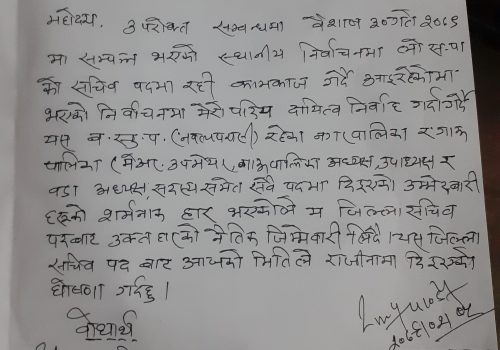 महोदय,
उपरोक्त सम्बन्धमा बैशाख ३० गते २०७९
मा सम्पन्न भएको स्थानीय निर्वाचनमा लो स.पा
को सचिव पदमा रही कामकाज गर्दै आइरहेकोमा
भएको निर्वाचनमा मेरो पदिय दायित्व निर्वाह गर्दागर्दै
यस ब.सु.प. (नवलपरासी) रहेका नगरपालिका र गाऊ
पालिका (मेयर, उपमेयर, गाऊपालिका अध्यक्ष, उपाध्यक्ष र
वडा अध्यक्ष, सदस्य समेत सबै पदमा दिइएको उम्मेदवारी
हरुको शर्मनाक हार भएकोले म जिल्ला सचिव
पदबाट उक्त हारको नैतिक जिम्मेवारी लिँदै । यस जिल्ला
सचिव पद बाट आजको मितिले राजीनामा दिइएको
घोषणा गर्दछु ।
बोधार्थ